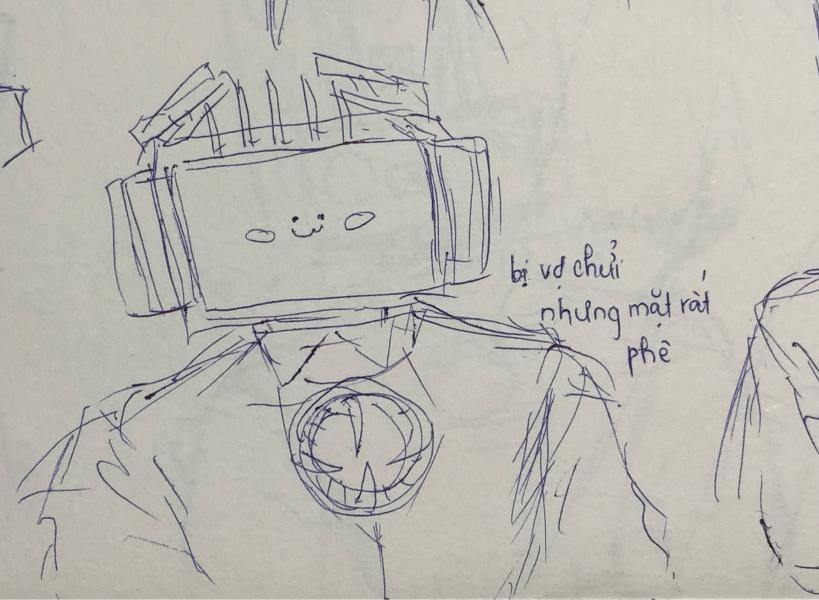 bị vợ chửi
nhưng mặt rất
phê